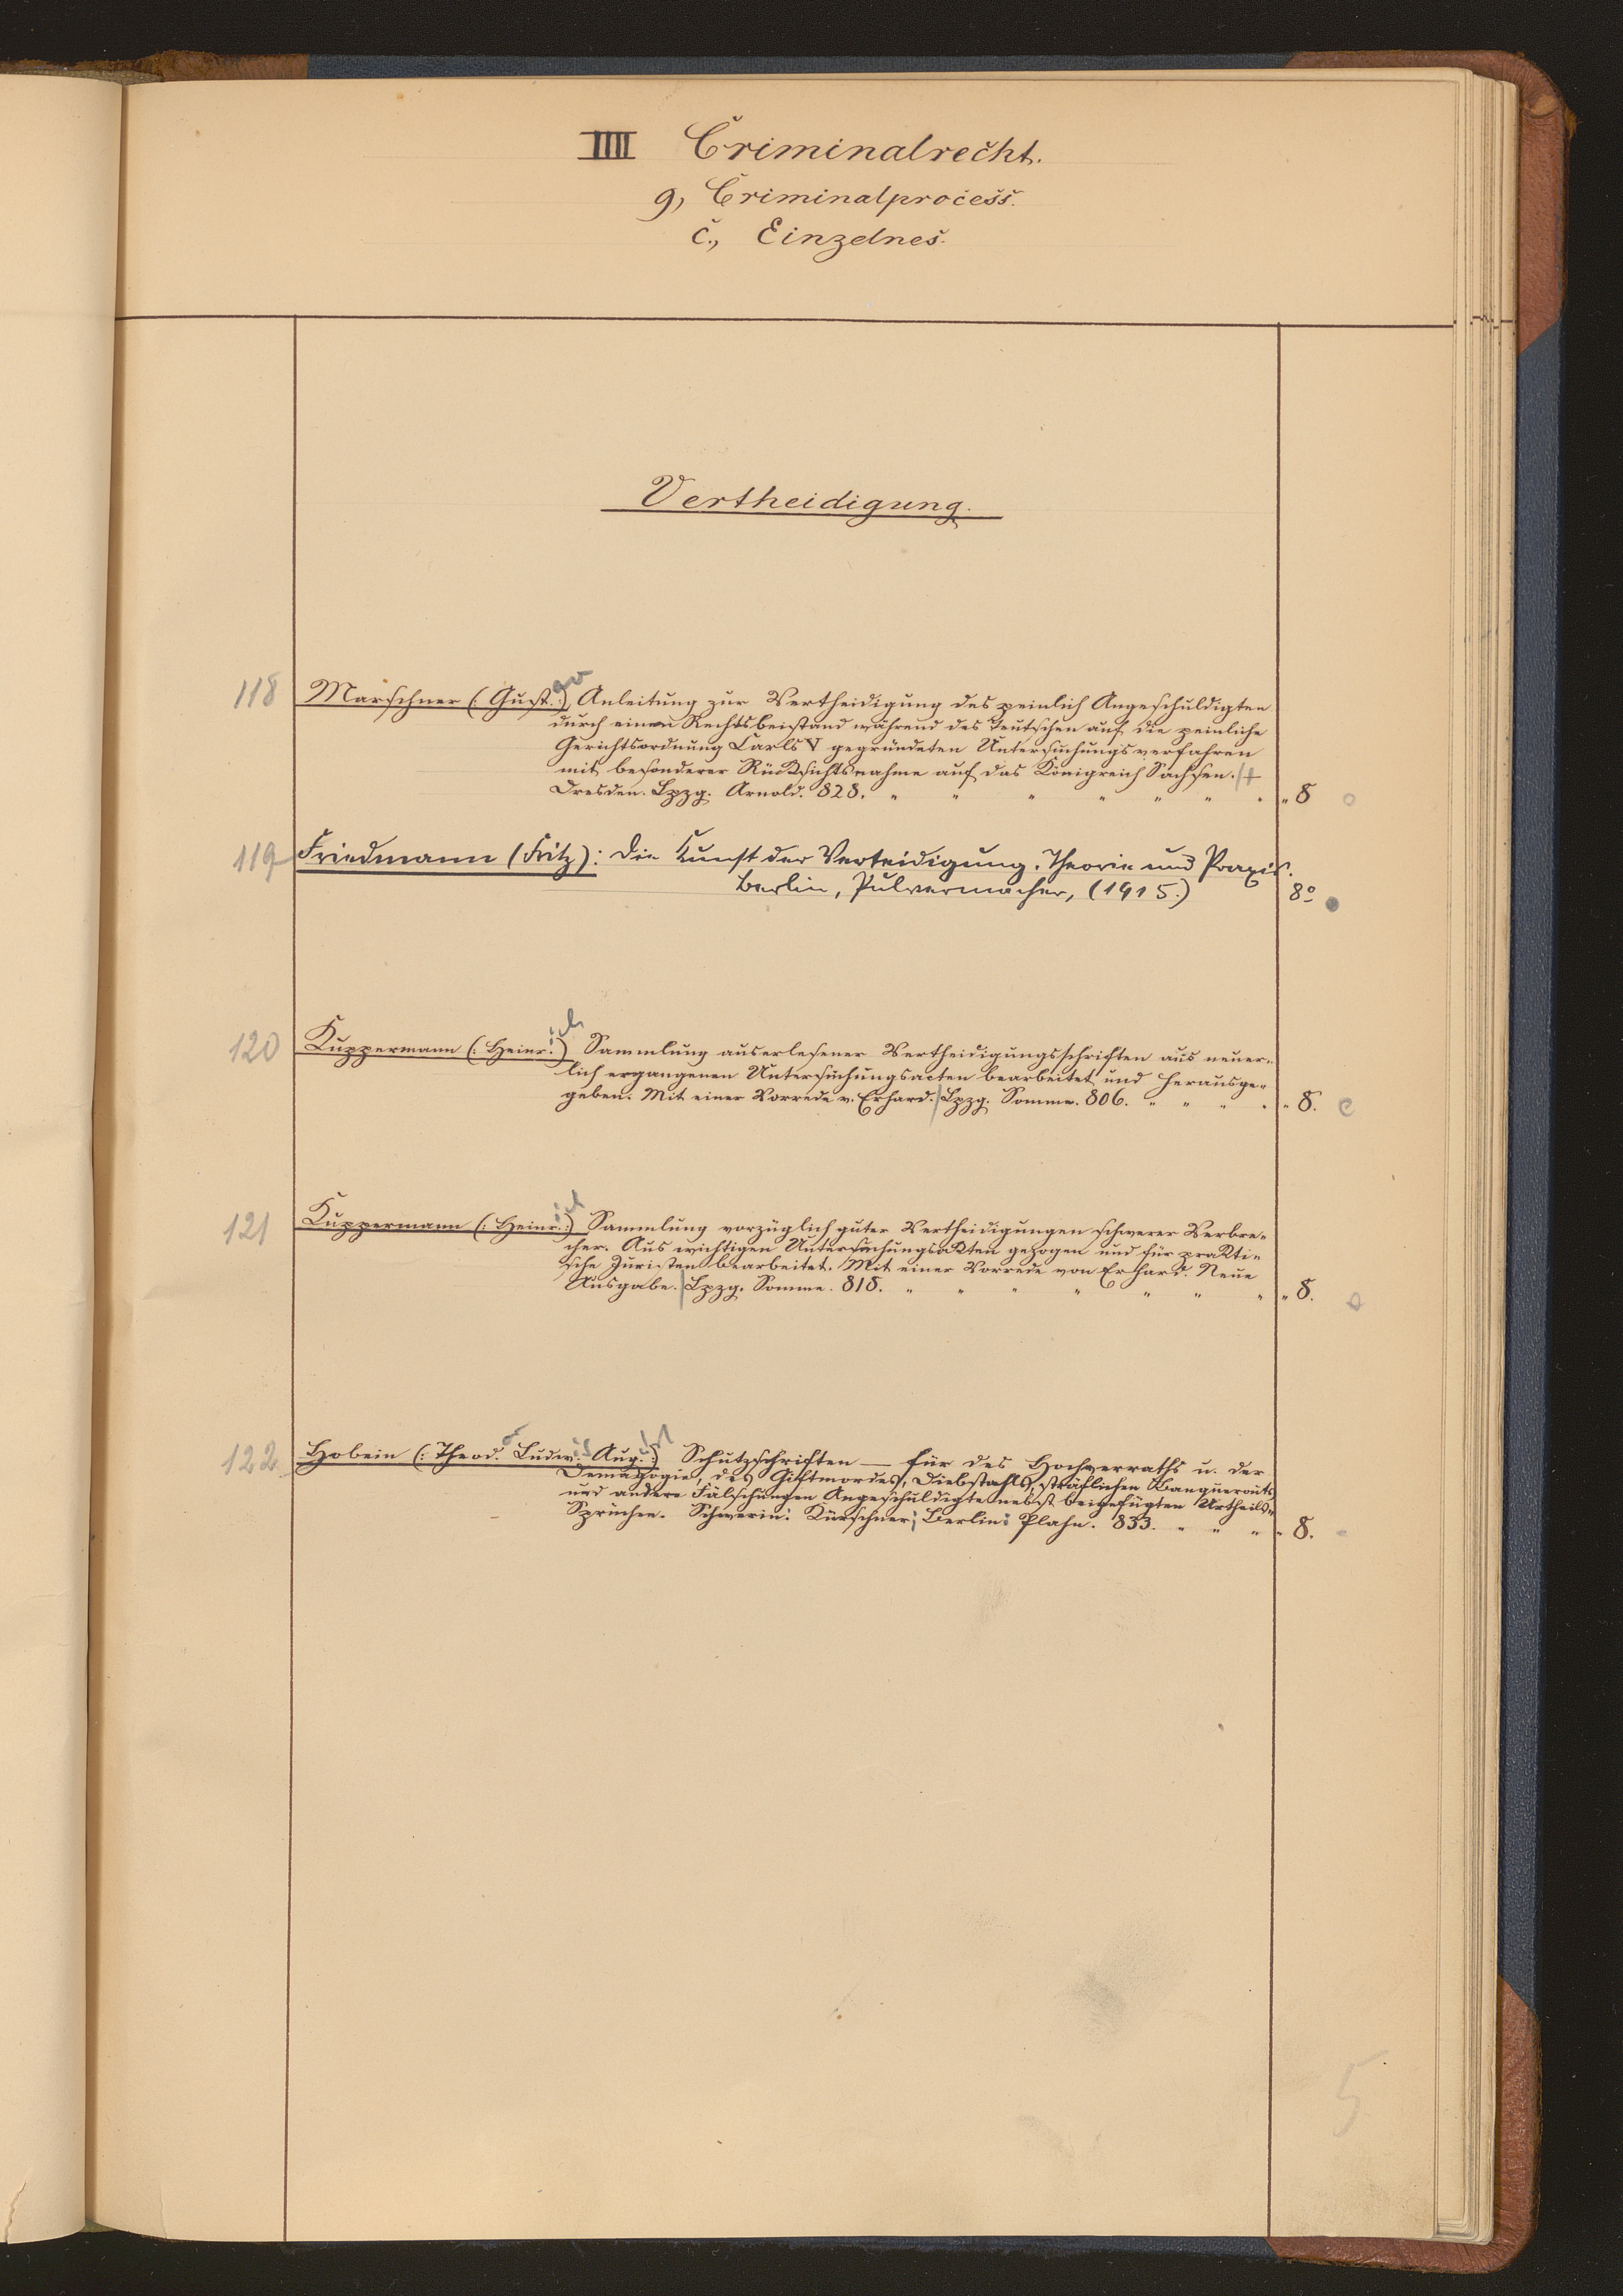 IIII Criminalrecht.
g, Criminalprocess.
c., Einzelnes.
Vertheidigung.
118 Marschner (: Gust.:) av Anleitung zur Vertheidigung des peinlich Angeschuldigten
durch einen Rechtsbeistand während des Teutschen auf die peinliche
Gerichtsordnung Carls V gegründeten Untersuchungsverfahren
mit besonderer Rücksichtsnahme auf das Königreich Sachsen.
Dresden. Lpzg. Arnold. 828. " " " " " " " " 8
119 Friedmann (Fritz): Die Kunst der Verteidigung. Theorie und Praxis.
Berlin, Pulvermacher, (1915.) 8º
120 Kuppermann (: Heinr.:) ich Sammlung auserlesener Vertheidigungsschriften aus neuer-
lich ergangenen Untersuchungsacten bearbeitet und herausge-
geben. Mit einer Vorrede v. Erhard. Lpzg. Somme. 806. " " " " " 8.
121 Kuppermann (: Heinr.:) ich Sammlung vorzüglich guter Vertheidigungen schwerer Verbre-
cher. Aus wichtigen Untersuchungsakten gezogen und für prakti-
sche Juristen bearbeitet. Mit einer Vorrede von Erhard. Neue
Ausgabe. Lpzg. Somme. 818. " " " " " " " " 8.
122 Hobein (: Theod. Ludw. Aug.:) Schutzschriften — für des Hochverraths u. der
Demagogie, des Giftmordes, Diebstahls, sträflichen Banquerouts
und andere Fälschungen Angeschuldigte nebst beigefügten Urtheils-
Sprüchen. Schwerin: Kürschner; Berlin: Plahn. 833. " " " " 8.
5